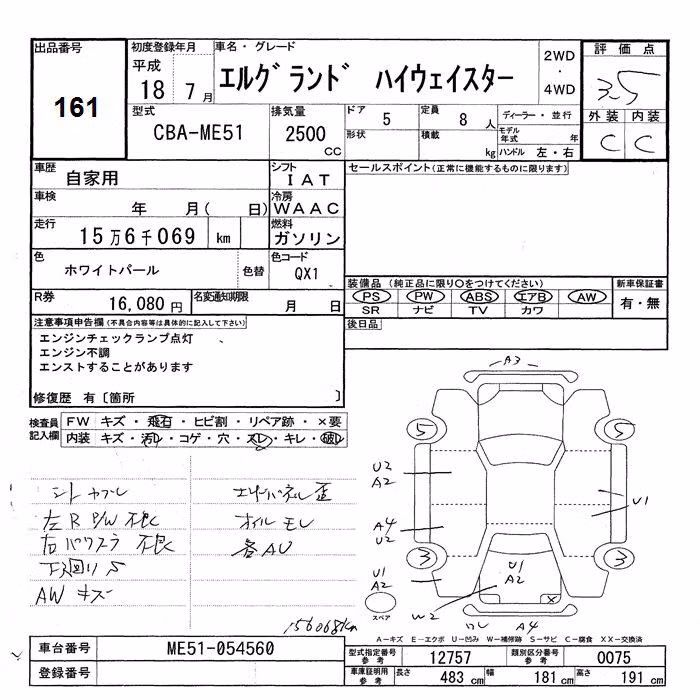 出品番号
161
初度登録年月
平成
18 7月
車名・グレード
エルグランド ハイウェイスター
2WD
・
4WD
評価点
3.5
外装 内装
C C
型式
CBA-ME51
排気量
2500
cc
ドア 5
定員 8 人
形状
積載 kg
ディーラー・並行
モデル年式 年
ハンドル 左・右
車歴
自家用
シフト
IAT
車検
年 月( 日)
冷房
WAAC
走行
15万6千069 km
燃料
ガソリン
色
ホワイトパール
色替
色コード
QX1
R券
16,080円
名変通知期限
月 日
セールスポイント(正常に機能するものに限ります)
装備品 (純正品に限り〇をつけてください)
PS PW ABS エアB AW
SR ナビ TV カワ
新車保証書
有・無
後日品
注意事項申告欄(不具合内容等は具体的に記入して下さい)
エンジンチェックランプ点灯
エンジン不調
エンストすることがあります
修復歴 有〔箇所 〕
検査員
記入欄
FW キズ・飛石・ヒビ割・リペア跡・×要
内装 キズ・汚レ・コゲ・穴・スレ・キレ・破レ
シート カブレ
左R P/W 不良
右パワスラ 不良
下廻りS
AW キズ
エンドパネル歪
オイルモレ
各AU
156068km
A3
5
5
U2
A2
U1
A4
U2
3
3
U1
A2
U1
A2
W2
ワレ
A4
×
スペア
A-キズ E-エクボ U-凹み W-補修跡 S-サビ C-腐食 XX-交換済
車台番号
ME51-054560
登録番号
型式指定番号
参考
12757
類別区分番号
参考
0075
車庫証明用
参考
長さ
483 cm
幅
181 cm
高さ
191 cm